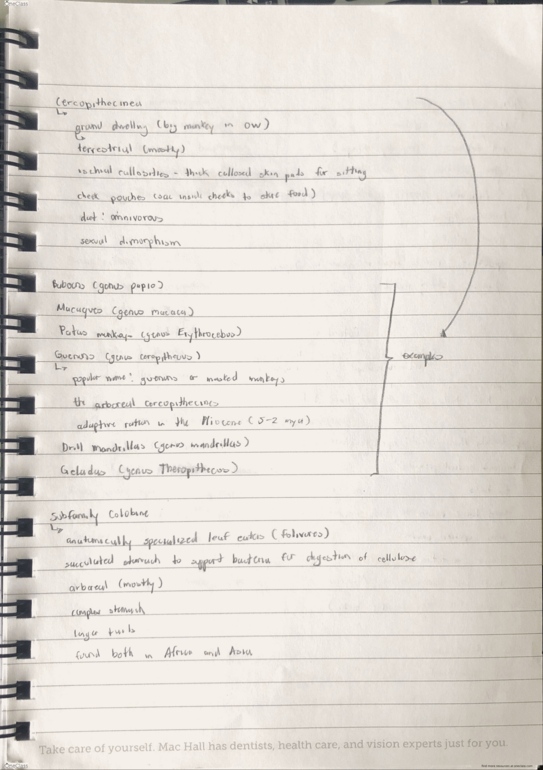 Cercopithecinea
ground dwelling (big monkey in OW)
terrestrial (mostly)
ischial callosities - thick callosed skin pads for sitting
cheek pouches (can inside cheeks to store food)
diet: omnivorous
sexual dimorphism
Baboons (genus papio)
Macaques (genus macaca)
Patas monkey- (genus Erythrocebus)
Guenons (genus cercopithecus)
examples
popular name: guenons or masked monkeys
the arboreal cercopithecines
adaptive ration in the Pliocene (5-2 mya)
Drill mandrillas (genus mandrillas)
Geladas (genus Theropithecus)
Subfamily Colobine
anatomically specialized leaf eaters (folivores)
sacculated stomach to support bacteria for digestion of cellulose
arboreal (mostly)
complex stomach
longer tails
found both in Africa and Asia
Take care of yourself. Mac Hall has dentists, health care, and vision experts just for you.